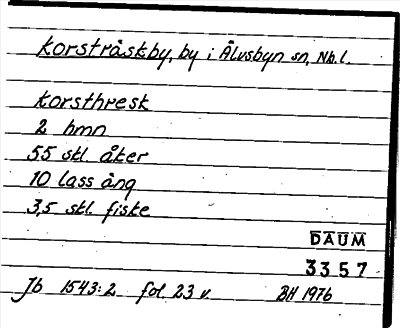 Korsträskby, by i Älvsbyn sn, Nb.l.
Korsthresk
2 hmn
55 skl. åker
10 lass äng
3,5 skl. fiske
DAUM
3357
Jb 1543:2 fol. 23 v. BH 1976